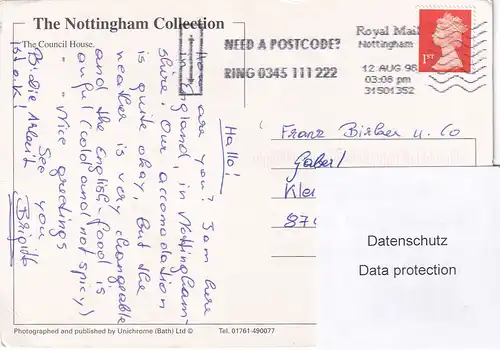 The Nottingham Collection
The Council House.
NEED A POSTCODE?
RING 0345 111 222
Royal Mail
Nottingham
12 AUG 96
03:06 pm
31501352
1ST
Hallo!
How are you? I am here
in England, in Nottingham-
shire. Our accomodation
is quite okay, but the
weather is very changeable
and the English food is
awful (cold and not spicy)
" " Nice greetings
See you
Brigitte
Franz Birker u. Co
Gaberl
Kle
87
Datenschutz
Data protection
Photographed and published by Unichrome (Bath) Ltd © Tel. 01761-490077